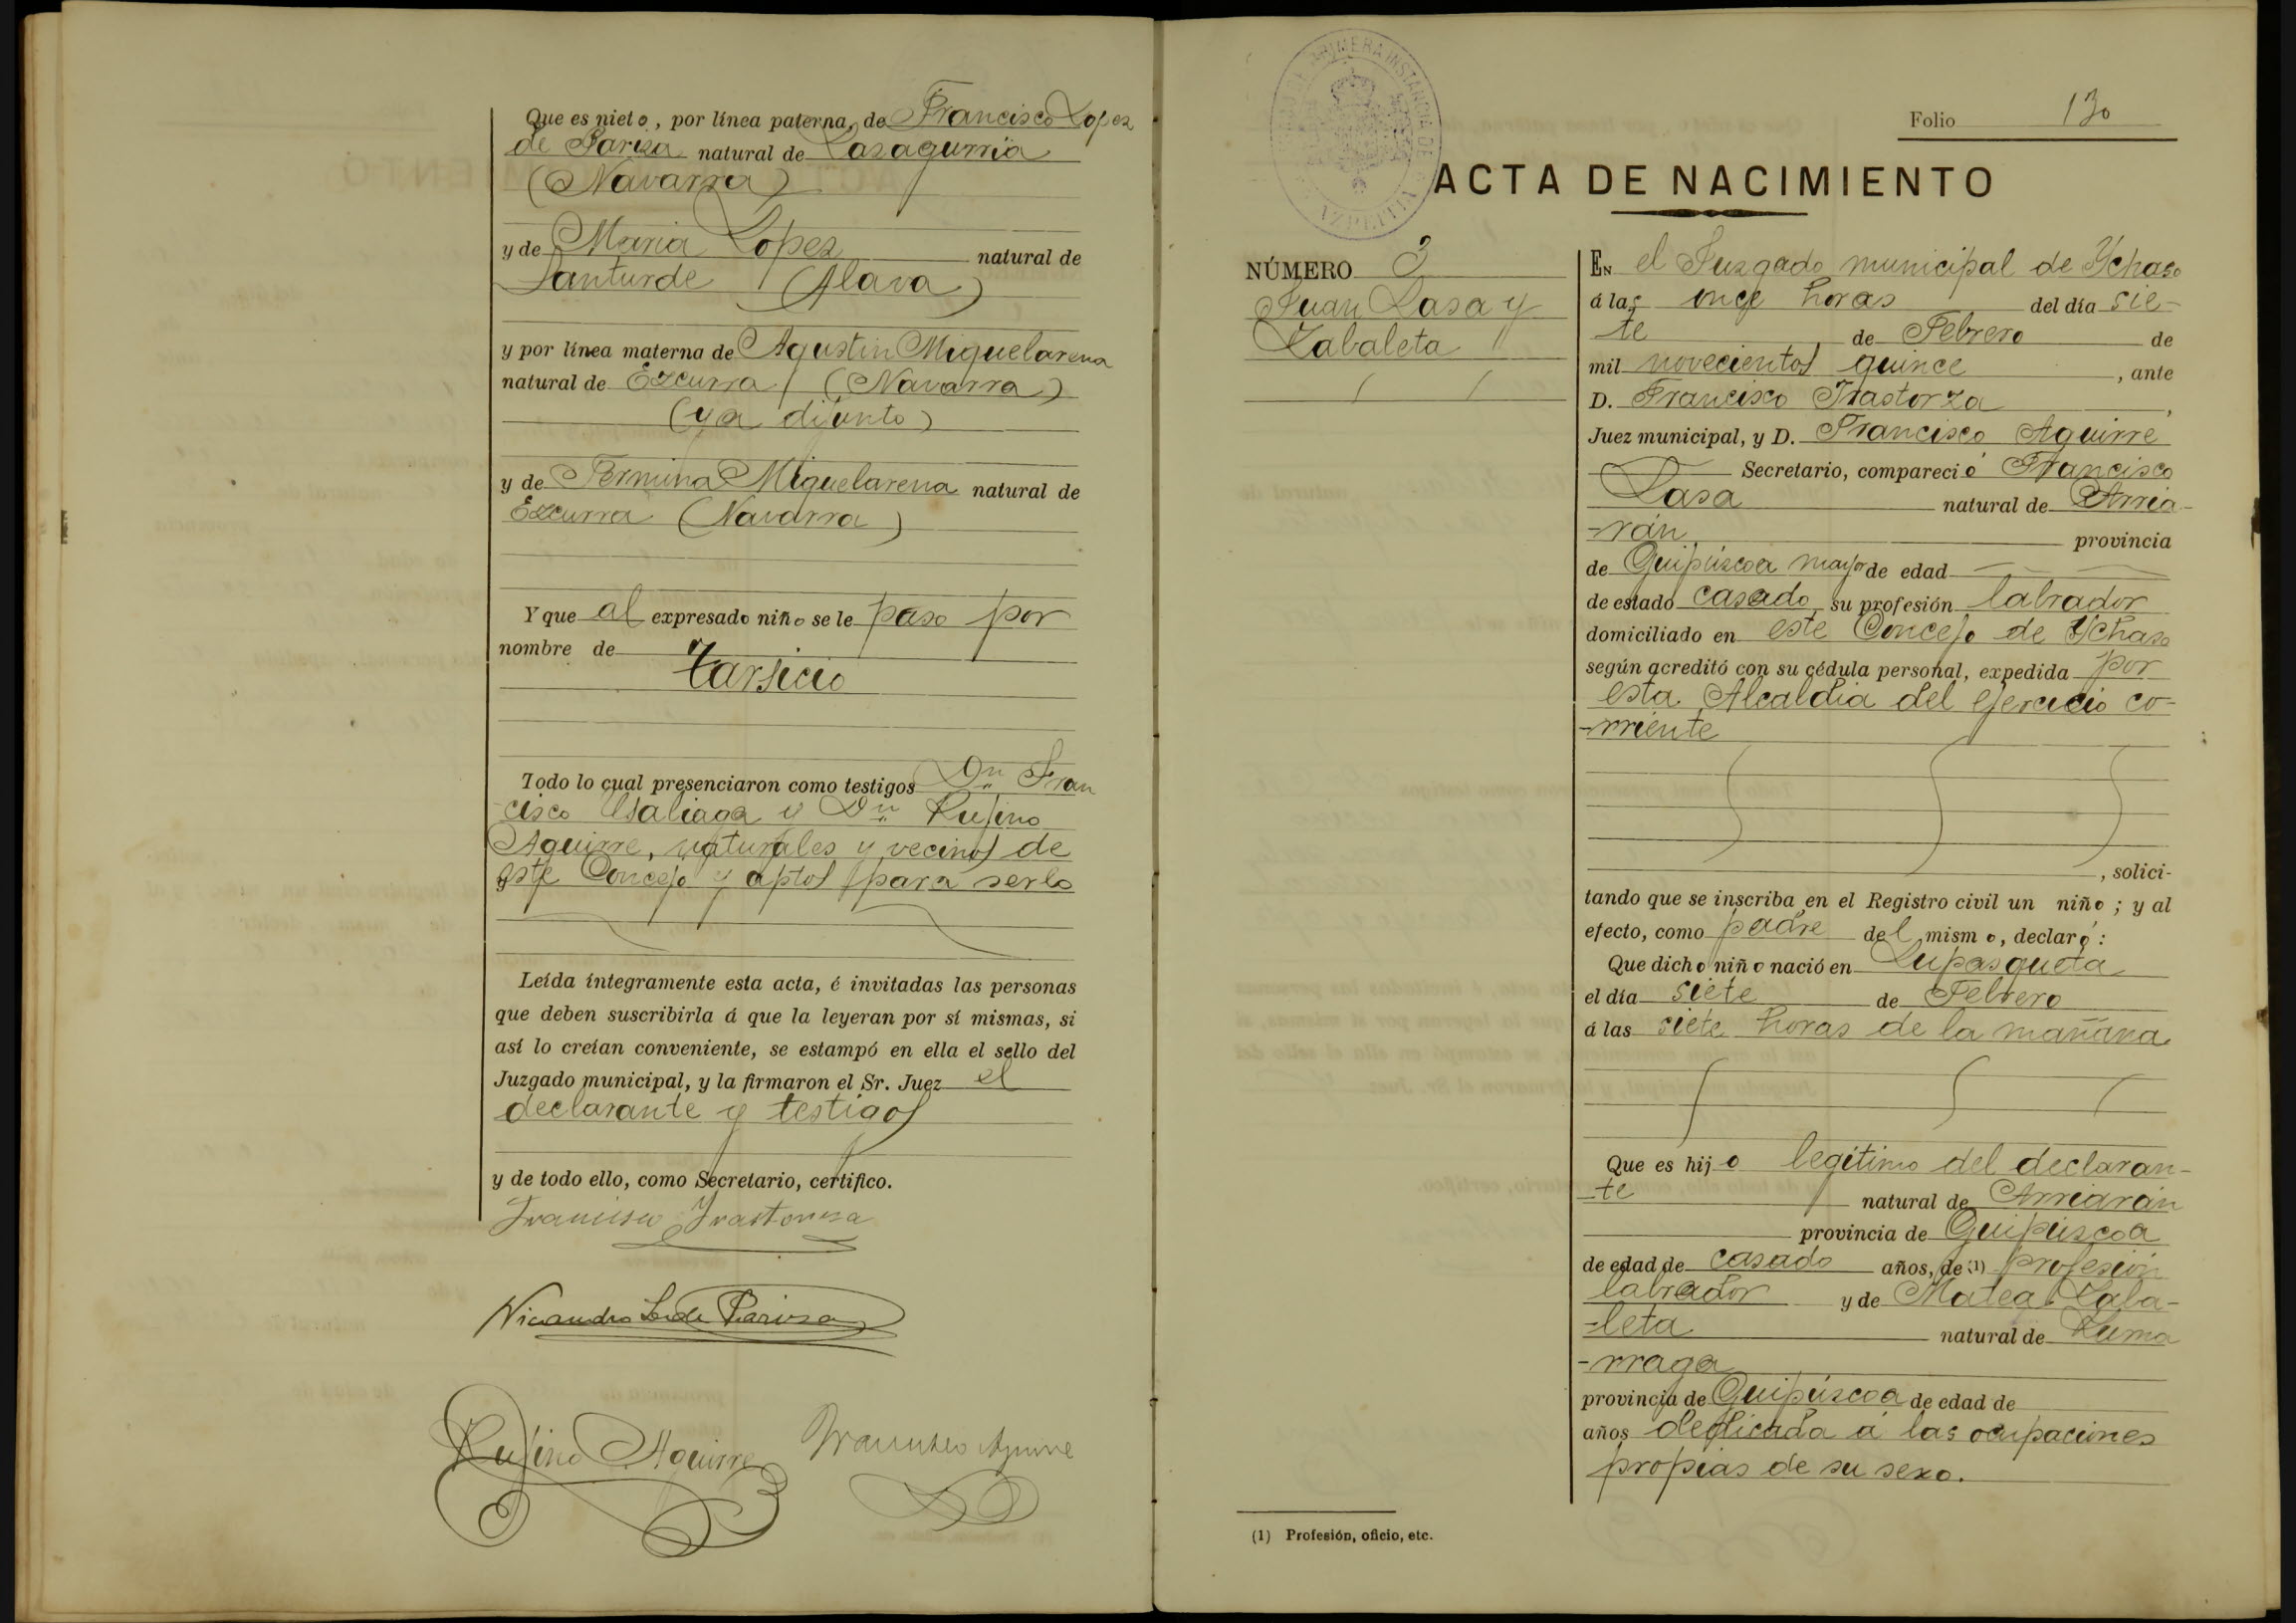 Que es nieto, por línea paterna, de Francisco Lopez
de Pariza natural de Lasagurria
(Navarra)
y de Maria Lopez natural de
Santurde (Alava)
y por línea materna de Agustin Miguelarena
natural de Ezcurra (Navarra)
(ya difunto)
y de Fermina Miguelarena natural de
Ezcurra (Navarra)
Y que al expresado niño se le paso por
nombre de
Tarsicio
Todo lo cual presenciaron como testigos Dn Fran
cisco Usaliaga y Dn Rufino
Aguirre, naturales y vecinos de
este Concejo y aptos para serlo
Leída íntegramente esta acta, é invitadas las personas
que deben suscribirla á que la leyeran por sí mismas, si
así lo creían conveniente, se estampó en ella el sello del
Juzgado municipal, y la firmaron el Sr. Juez el
declarante y testigos
y de todo ello, como Secretario, certifico.
Francisco Irastorza
Nicandro L. de Pariza
Rufino Aguirre
Francisco Aguirre
JUZGADO DE PRIMERA INSTANCIA DE AZPEITIA
Folio 130
ACTA DE NACIMIENTO
NÚMERO 3
Juan Lasa y
Zabaleta
EN el Juzgado municipal de Ychaso
á las once horas del día sie-
te de Febrero de
mil novecientos quince, ante
D. Francisco Irastorza,
Juez municipal, y D. Francisco Aguirre
Secretario, compareció Francisco
Lasa natural de Arria-
-rán provincia
de Guipúzcoa mayor de edad
de estado casado su profesión labrador
domiciliado en este Concejo de Ychaso
según acreditó con su cédula personal, expedida por
esta Alcaldia del ejercicio co-
-rriente
, solici-
tando que se inscriba en el Registro civil un niño; y al
efecto, como padre del mismo, declaró:
Que dicho niño nació en Lupasqueta
el día siete de Febrero
á las siete horas de la mañana
Que es hijo legítimo del declaran-
-te natural de Arriarán
provincia de Guipúzcoa
de edad de casado años, de (1) profesión
labrador y de Matea Zaba-
-leta natural de Zuma
-rraga
provincia de Guipúzcoa de edad de
años dedicada á las ocupaciones
propias de su sexo.
(1) Profesión, oficio, etc.